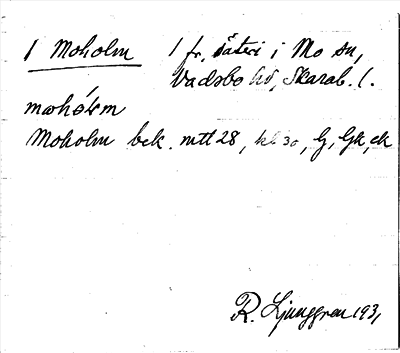 1 Moholm 1 fr. säteri i Mo sn,
Vadsbo hd, Skarab. l.
Moholm bck. mtl 28, kl 30, G, Gk, ck
R. Ljunggren 1931